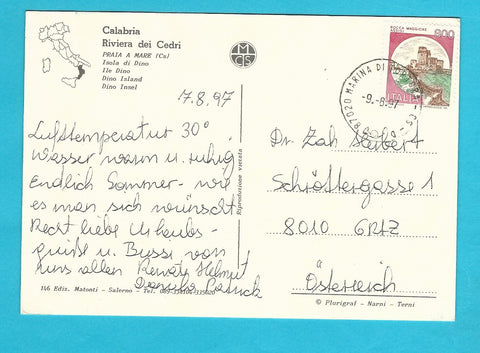 Calabria
Riviera dei Cedri
PRAIA A MARE (Cs)
Isola di Dino
Ile Dino
Dino Island
Dino Insel
M
C S
ROCCA MAGGIORE
900
ITALIA
87020 MARINA DI
17.8.97
Lufttemperatur 30°
Wasser warm u. ruhig
Endlich Sommer - wie
es man sich wünscht
Recht liebe Urlaubs-
grüße u. Bussi von
uns allen Renate Helmut
Patrick
Riproduzione vietata
Dr. Zah Seibert
Schröttergasse 1
8010 GRAZ
Österreich
146 Ediz. Matonti - Salerno - Tel.
© Plurigraf - Narni - Terni